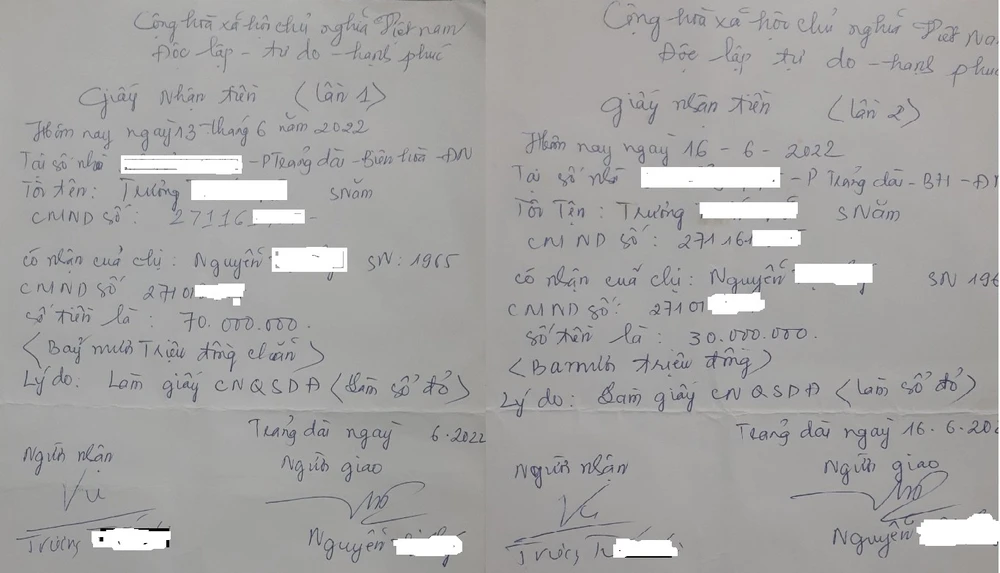 Cộng hoà xã hội chủ nghĩa Việt nam
Độc lập - tự do - hạnh phúc
Giấy nhận tiền (lần 1)
Hôm nay ngày 13 tháng 6 năm 2022
Tại số nhà - P Trảng dài - Biên hoà - ĐN
Tôi tên: Trương sNăm
CMND số: 27116
có nhận của chị: Nguyễn SN: 1965
CMND số 27101
số tiền là: 70.000.000.
(Bảy mươi Triệu đồng chẵn)
Lý do: Làm giấy CNQSDĐ (Làm sổ đỏ)
Trảng dài ngày 6.2022
Người nhận Người giao
Trương Nguyễn
Cộng hoà xã hội chủ nghĩa Việt Na
Độc lập tự do - hạnh phúc
giấy nhận tiền (lần 2)
Hôm nay ngày 16 - 6 - 2022
Tại số nhà - P Trảng dài - BH - ĐN
Tôi Tên: Trương sNăm
CMND số: 271161
có nhận của chị: Nguyễn SN 196
CMND số: 27101
số tiền là: 30.000.000.
(Ba mươi triệu đồng)
Lý do: Làm giấy CNQSDĐ (làm sổ đỏ)
Trảng dài ngày 16.6.20
Người nhận Người giao
Trương Nguyễn